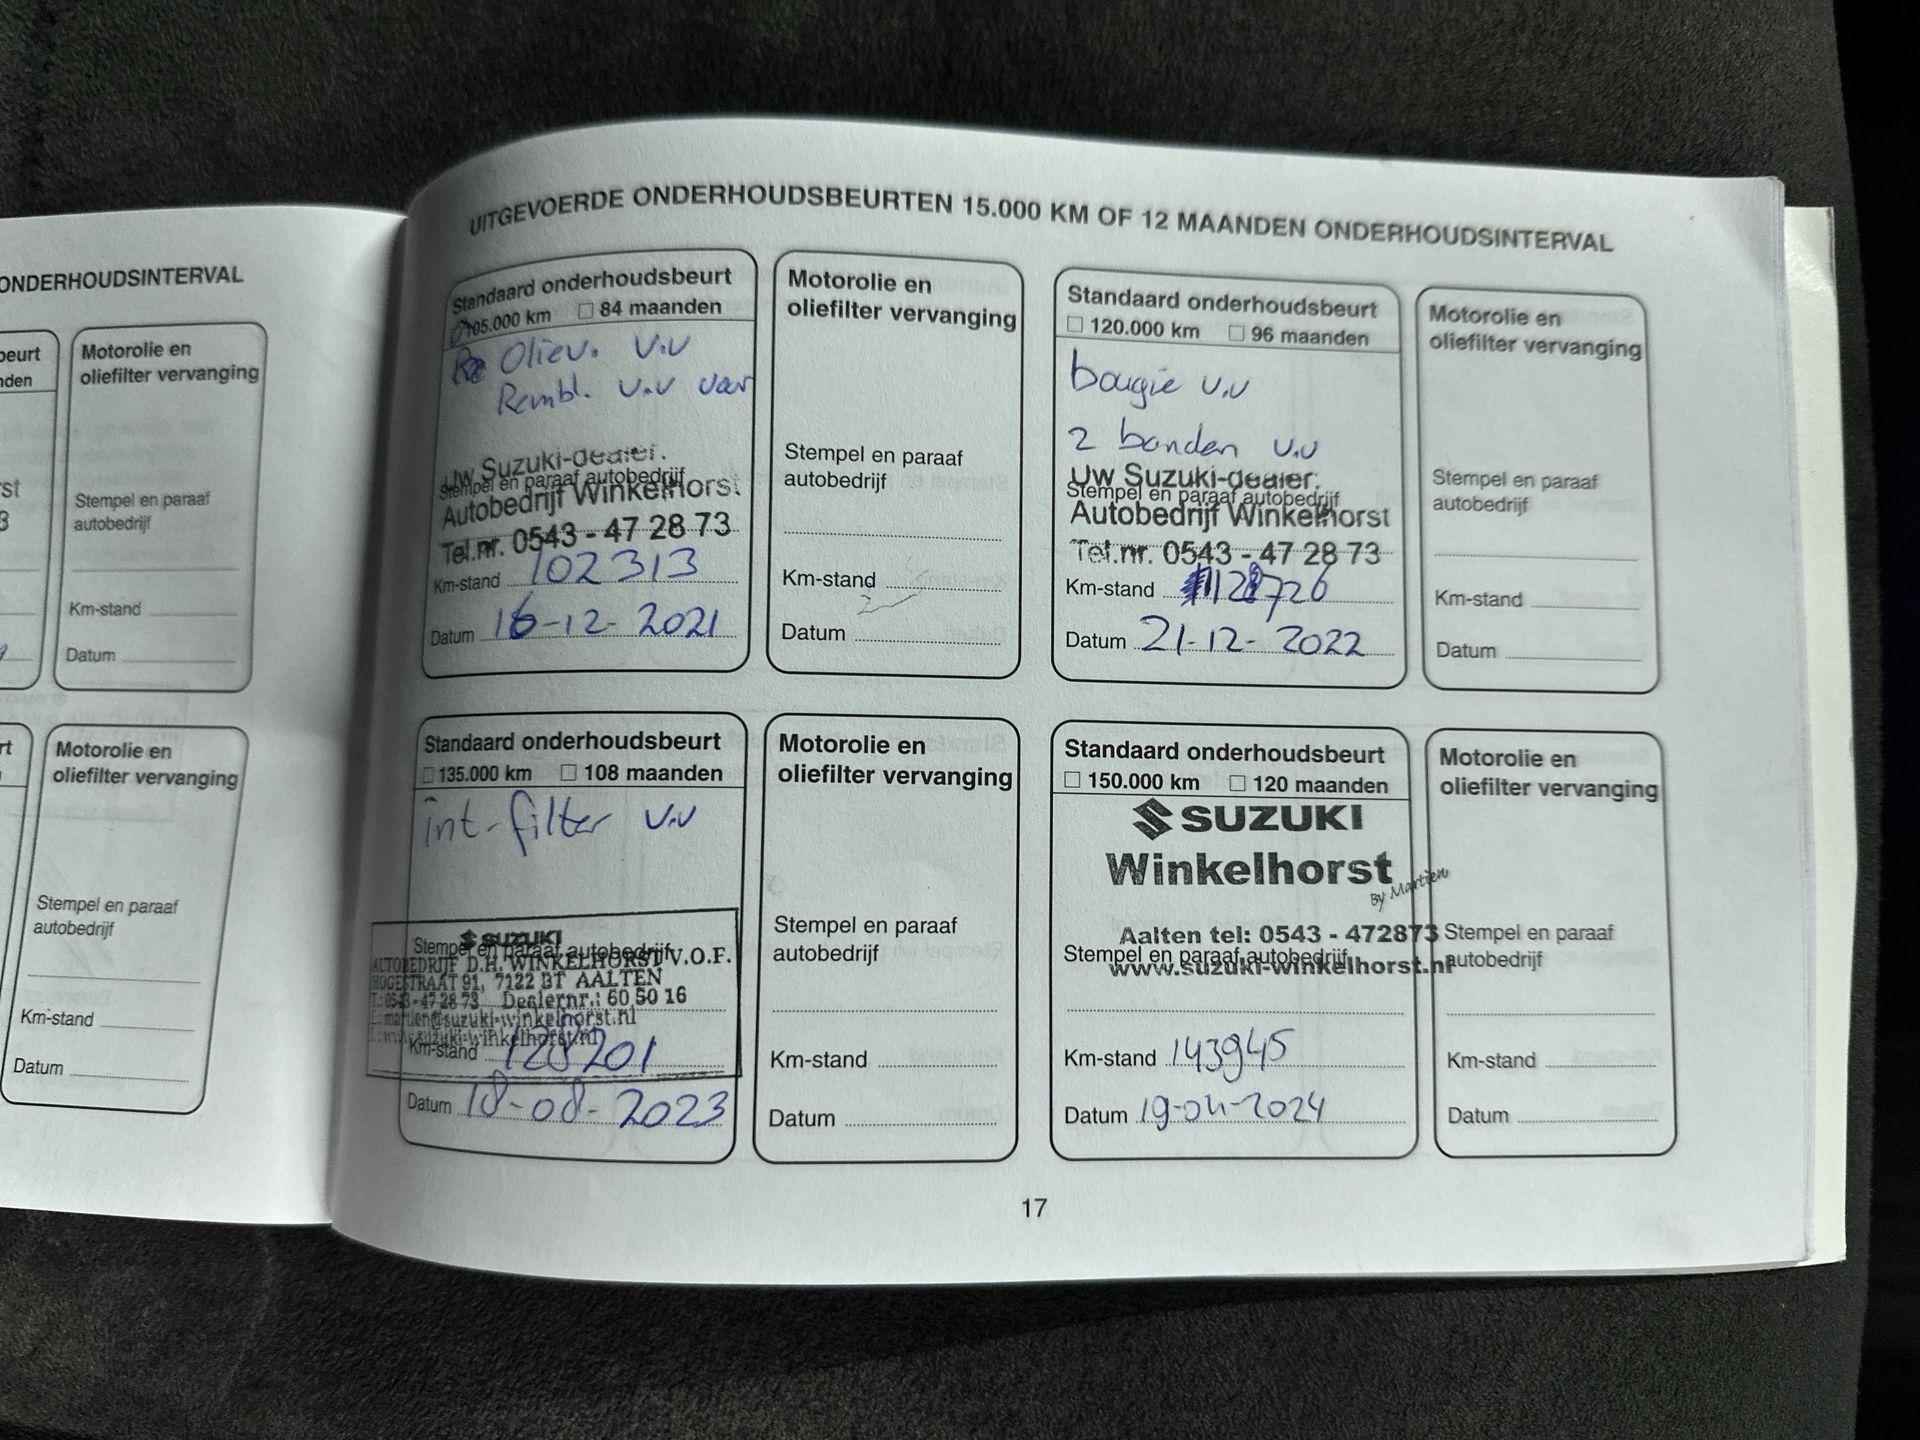 ONDERHOUDSINTERVAL
beurt
nden
Motorolie en
oliefilter vervanging
Stempel en paraaf
autobedrijf
Km-stand
Datum
rt
Motorolie en
oliefilter vervanging
Stempel en paraaf
autobedrijf
Km-stand
Datum
UITGEVOERDE ONDERHOUDSBEURTEN 15.000 KM OF 12 MAANDEN ONDERHOUDSINTERVAL
Standaard onderhoudsbeurt
105.000 km 84 maanden
Oliev. v.v
Rembl. v.v voor
Uw Suzuki-dealer:
Stempel en paraaf autobedrijf
Autobedrijf Winkelhorst
Tel.nr. 0543 - 47 28 73
Km-stand 102313
Datum 16-12-2021
Motorolie en
oliefilter vervanging
Stempel en paraaf
autobedrijf
Km-stand
Datum
Standaard onderhoudsbeurt
120.000 km 96 maanden
bougie v.v
2 banden v.v
Uw Suzuki-dealer:
Stempel en paraaf autobedrijf
Autobedrijf Winkelhorst
Tel.nr. 0543 - 47 28 73
Km-stand
Datum 21-12-2022
Motorolie en
oliefilter vervanging
Stempel en paraaf
autobedrijf
Km-stand
Datum
Standaard onderhoudsbeurt
135.000 km 108 maanden
int-filter v.v
SUZUKI
Stempel en paraaf autobedrijf
AUTOBEDRIJF D.H. WINKELHORST V.O.F.
HOGESTRAAT 91, 7122 BT AALTEN
T.: 0543 - 47 28 73 Dealernr.: 60 50 16
E.: martien@suzuki-winkelhorst.nl
www.suzuki-winkelhorst.nl
Km-stand 128201
Datum 18-08-2023
Motorolie en
oliefilter vervanging
Stempel en paraaf
autobedrijf
Km-stand
Datum
Standaard onderhoudsbeurt
150.000 km 120 maanden
SUZUKI
Winkelhorst
By Martien
Aalten tel: 0543 - 472873
Stempel en paraaf autobedrijf
www.suzuki-winkelhorst.nl
Km-stand 143945
Datum 19-04-2024
Motorolie en
oliefilter vervanging
Stempel en paraaf
autobedrijf
Km-stand
Datum
17